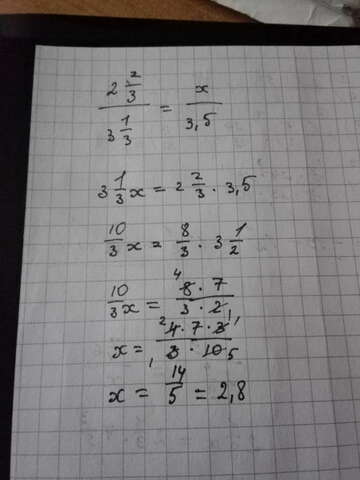 2 2/3 / 3 1/3 = x / 3,5
3 1/3 x = 2 2/3 · 3,5
10/3 x = 8/3 · 3 1/2
10/3 x = 8 4 · 7 / 3 · 2 1
x = 4 2 · 7 · 3 1 / 3 1 · 10 5
x = 14/5 = 2,8